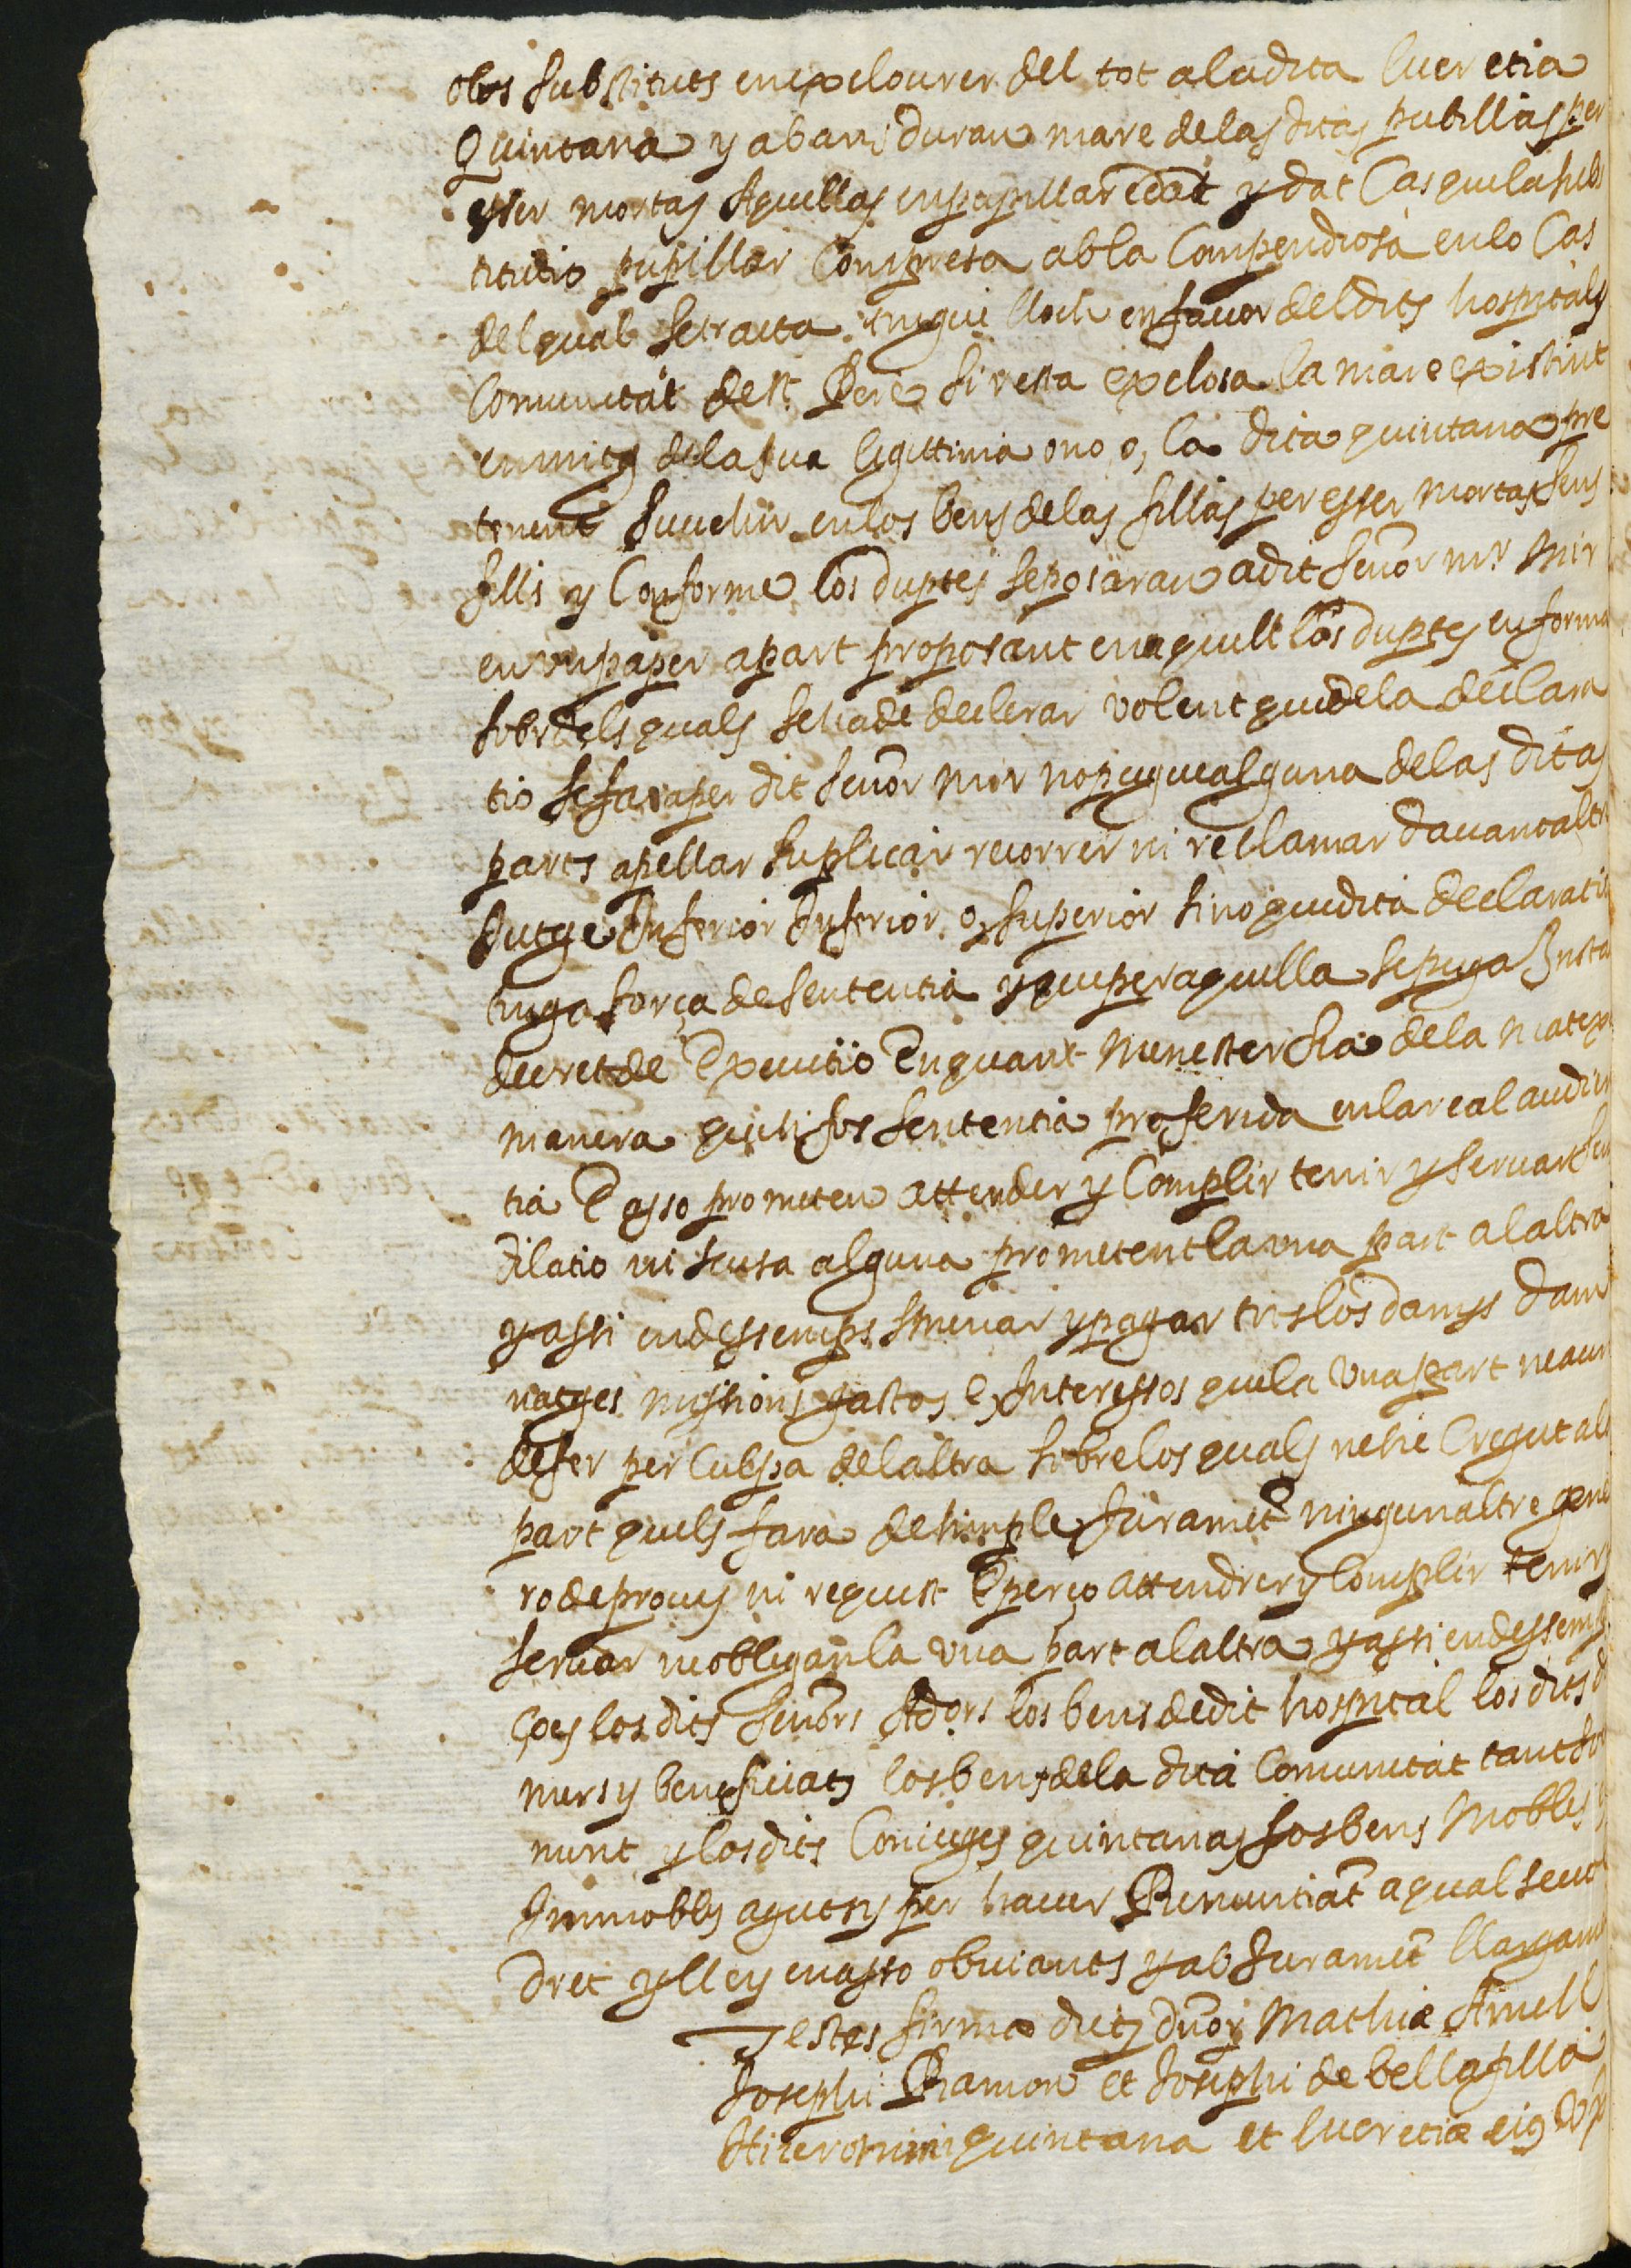 dels substituts en exclourer del tot a la dita lucretia
Quintana y abans duran mare de las ditas pubillas per
esser mortas Aquellas en pupillar edat y dat Cas que la subs
titutio pupillar Compresa ab la Compendiosa en lo Cas
del qual se tracta tingue lloch en favor dels dits hospital y
Comunitat de St. Pere si resta exclosa la mare existint
en mitg de la sua legittima o no o, la dita quintana pre
tenent succehir en los bens de las fillas per esser mortas sens
fills y Conforme los duptes se posaran a dit Senor mr. Mir
en un paper a part proposant en aquell los duptes en forma
sobre dels quals se ha de declarar volent que de la declara
tio se fara per dit Senor mir no puguealguna de las ditas
parts apellar suplicar recorrer ni reclamar davant altre
Jutge Inferior Inferior o, superior sino que dita declaratio
tinga força de sententia y que per aquella se puga Insta
decret de Executio En quant menester sia de la matexa
manera que si fos sententia proferida en la real audien
tia E asso prometen attender y Complir tenir y servar sens
dilatio ni scusa alguna prometent la una part a la altra
y assi endessemps smenar y pagar tots los danys dam
natges missions gastos e, Interessos que la una part ne aur
de fer per Culpa del altra sobre los quals ne sie Cregut al
part quels fara de simple Jurament ningun altre gene
ro de proves ni request E perço attendrer y Complir tenir y
servar ne obligan la una part a la altra y assi endessemps
ço es los dits Senors Adors los bens de dit hospital los dits d
mers y beneficiats los bens de la dita Comunitat tant so
ment y los dits Coniuges quintanas sos bens Mobles y
Immobles aguts y per haver Renuntiat a qual sevol
dret y lley en asso obviants y ab Jurament llargament
Testes firmæ dictorum dnor. Mathiæ Amell
Josephi Ramon et Josephi de bellafilla
Hieronimi quintana et lucretiæ eius ux